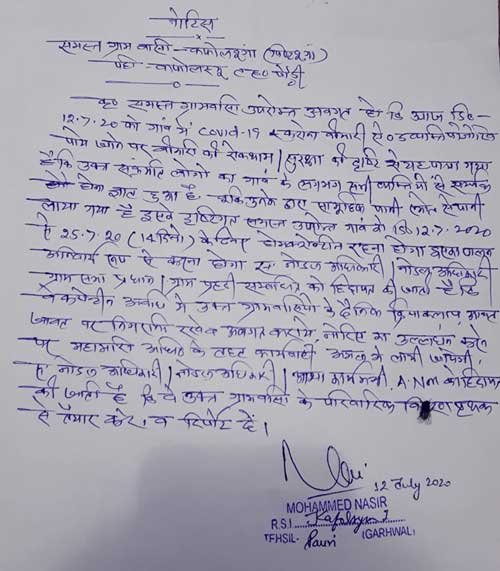 नोटिस
समस्त ग्राम वासी - काफोलश्यूंगा
पट्टी - कफोलस्यूं पौड़ी
कृ० समस्त ग्रामवासी उपरोक्त अवगत हो कि आज दि० -
12.7.20 को गांव में Covid-19 बीमारी
पाये जाने पर बीमारी की रोकथाम / सुरक्षा की दृष्टि से यह पाया गया
है कि उक्त संक्रमित लोगों का गांव के लगभग सभी व्यक्तियों से सम्पर्क
होना ज्ञात हुआ है - उनके द्वारा सामूहिक
गया है दृष्टिगत समस्त उपरोक्त गांव को दि० 12.7.2020
से 25.7.20 (14 दिनों) के लिए होम क्वारन्टीन रहना होगा इसका पालन
अनिवार्य रूप से करना होगा नोडल अधिकारी / नोडल अधिकारी
ग्राम सभा प्रधान / ग्राम प्रहरी सम्बन्धित को हिदायत दी जाती है कि
अवधि में उक्त ग्रामवासियों के दैनिक क्रियाकलाप,
पर निगरानी अवगत करायें, नोटिस का उल्लंघन करने
पर महामारी अधि० के तहत कार्यवाही अमल में लायी जायेगी,
नोडल अधिकारी / नोडल अधिकारी / आशा कार्यकत्री, A.N.M को हिदायत
दी जाती है कि वे उक्त ग्रामवासी के पारिवारिक
से तैयार करें, व रिपोर्ट दें।
12 July 2020
MOHAMMED NASIR
R.S.I. Kafolsyun I
TEHSIL- Pauri (GARHWAL)